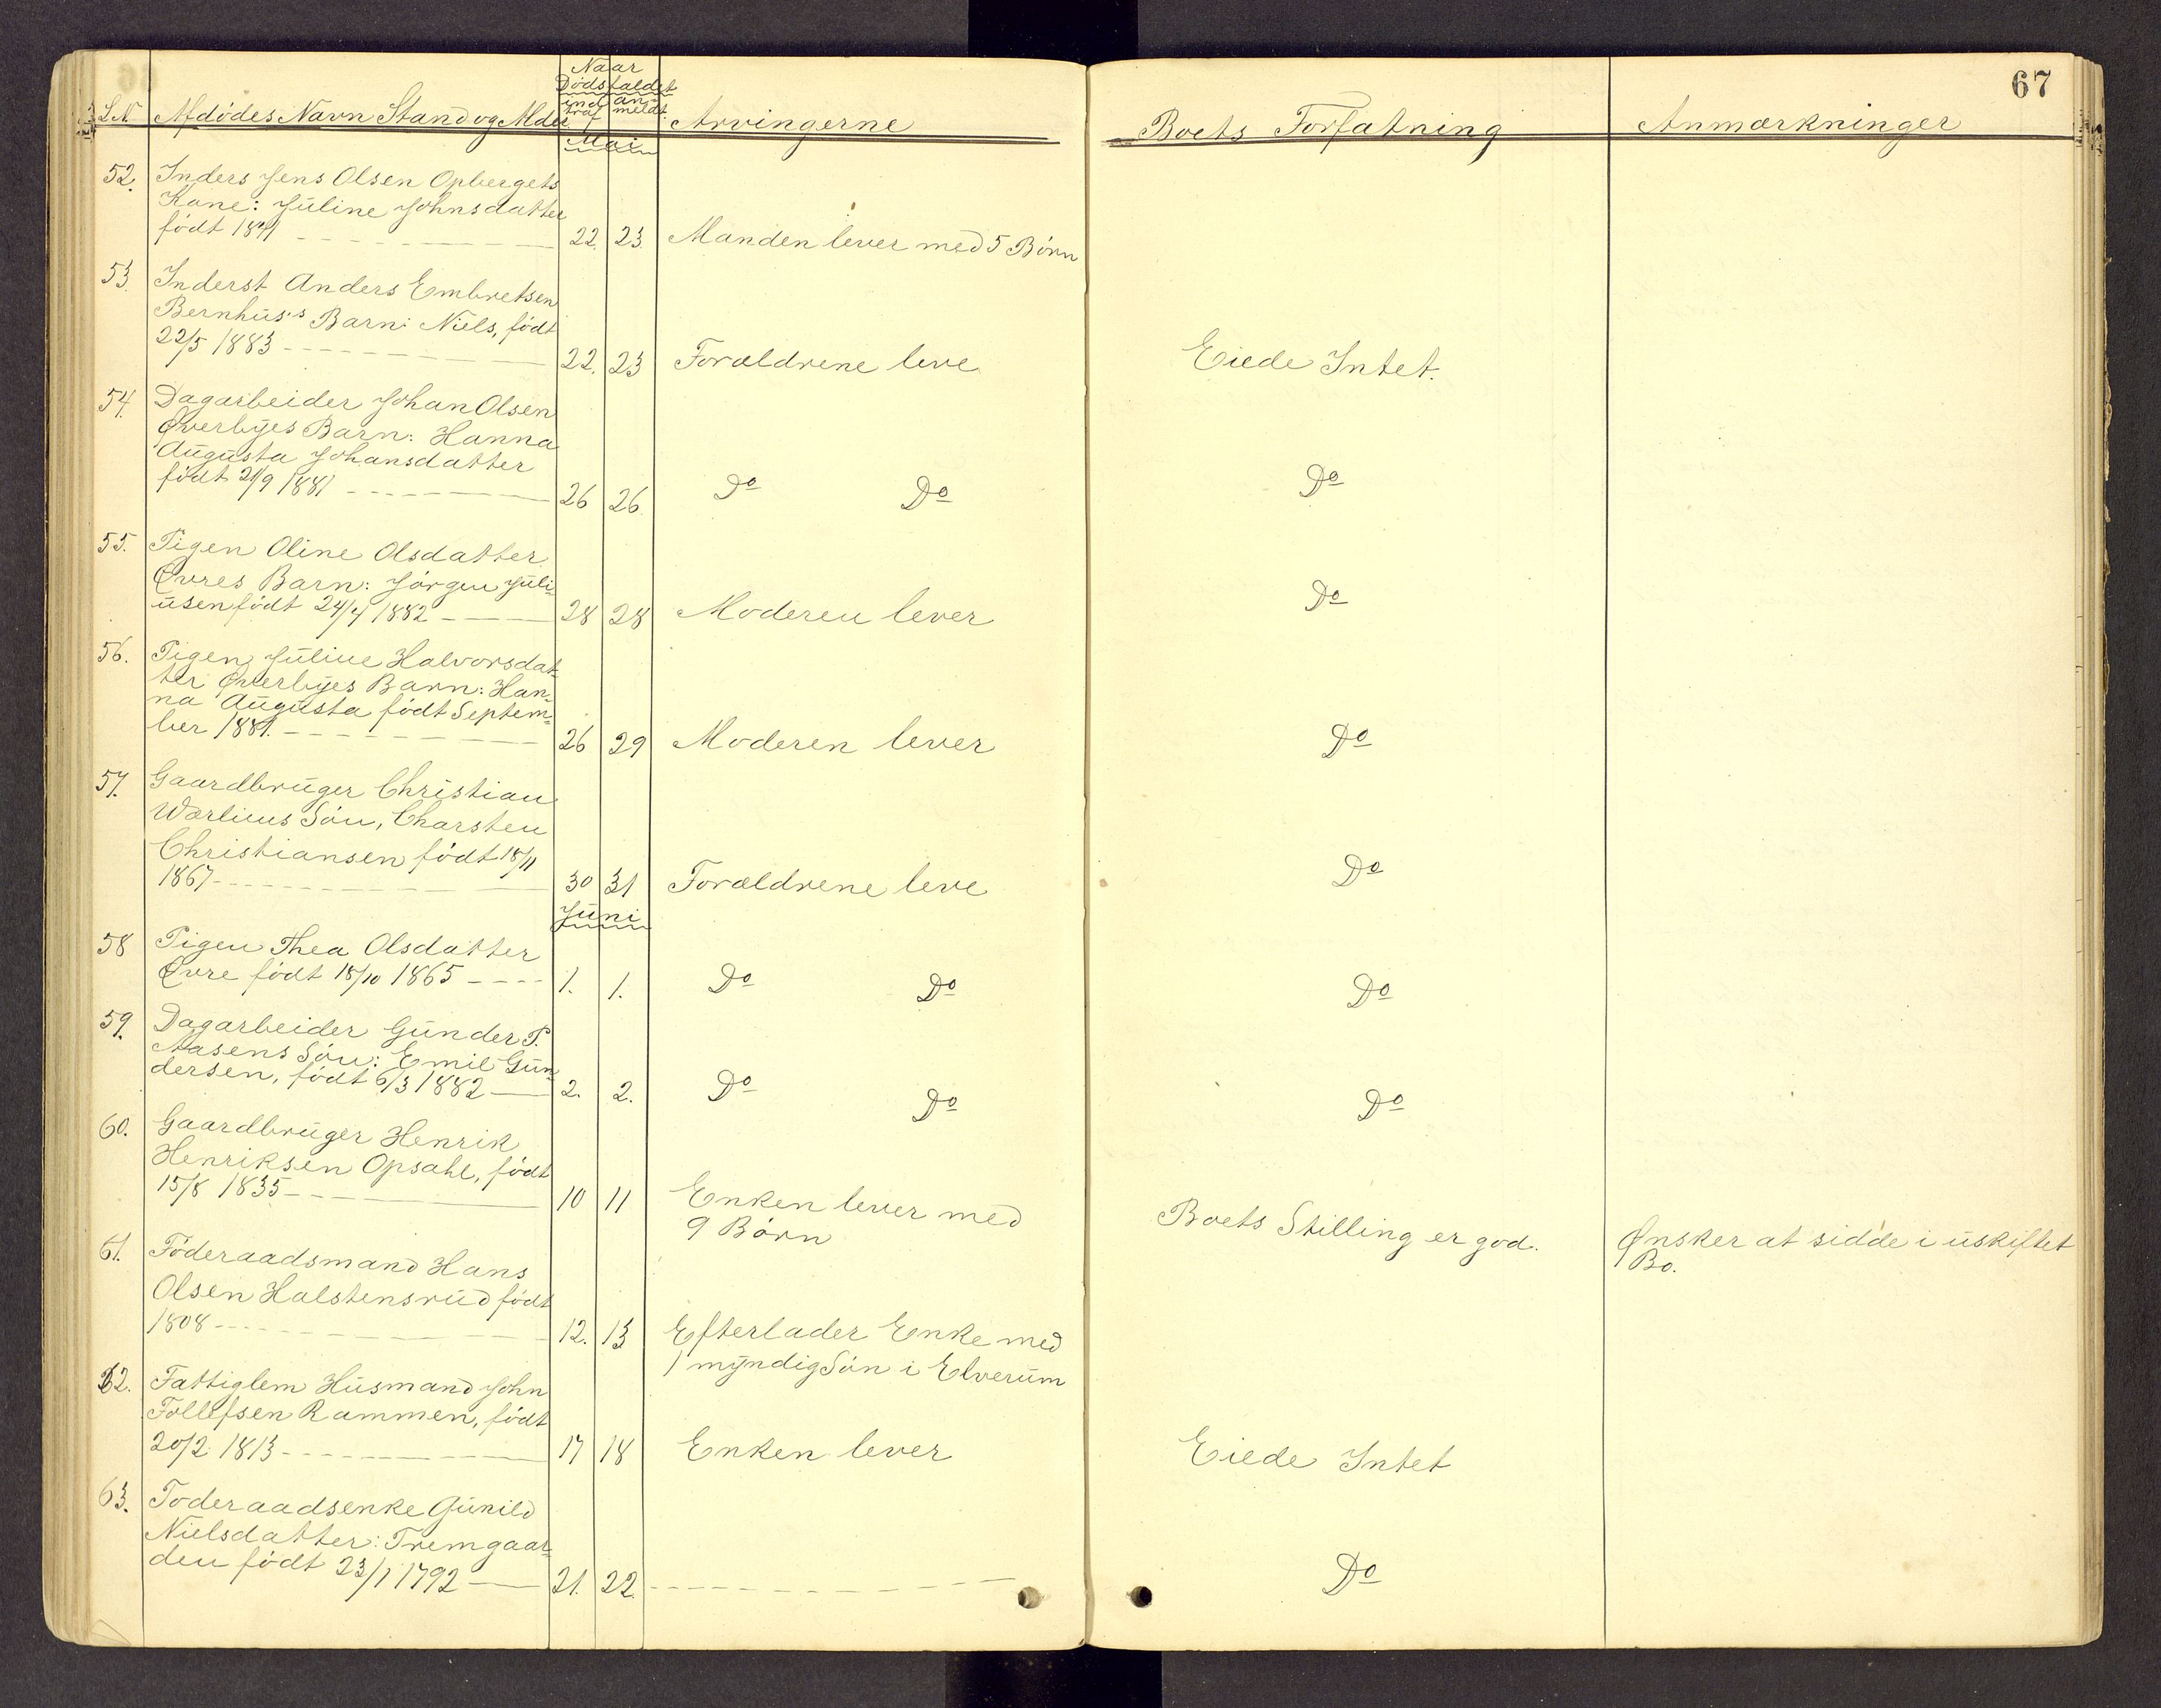 67
Naar
Dødsfaldet
L.N. Afdødes Navn Stand og Alder indtraf anmeldt. Arvingerne Boets Forfatning Anmærkninger
Mai
52. Inders Jens Olsen Opbergets
Kone: Juline Johnsdatter
født 1841 22. 23. Manden lever med 5 Børn
53. Inderst Anders Embretsen
Bernhus's Barn: Niels, født
22/5 1883 22. 23 Forældrene leve Eiede Intet.
54. Dagarbeider Johan Olsen
Øverbyes Barn: Hanna
Augusta Johansdatter
født 21/9 1881 26 26. Do Do Do
55. Pigen Oline Olsdatter
Øvres Barn: Jørgen Juli-
usen født 24/4 1882 28 28 Moderen lever Do
56. Pigen Juline Halvorsdat-
ter Øverbyes Barn: Han-
na Augusta født Septem-
ber 1881. 26 29 Moderen lever Do
57. Gaardbruger Christian
Wærlines Søn, Charsten
Christiansen født 18/11
1867 30 31 Forældrene leve Do
Juni
58 Pigen Thea Olsdatter
Øvre født 18/10 1865 1. 1. Do Do Do
59. Dagarbeider Gunder P.
Aasens Søn: Emil Gun-
dersen, født 6/3 1882 2. 2. Do Do Do
60. Gaardbruger Henrik
Henriksen Opsahl, født
15/8 1835 10 11 Enken lever med
9 Børn Boets Stilling er god. Ønsker at sidde i uskiftet
Bo.
61. Føderaadsmand Hans
Olsen Halstensrud født
1808 12. 13 Efterlader Enke med
1 myndig Søn i Elverum
62. Fattiglem Husmand John
Tollefsen Rammen, født
20/2 1813 17 18 Enken lever Eiede Intet
63. Føderaadsenke Gunild
Nielsdatter: Fremgaar-
den født 23/1 1792 21. 22. Do